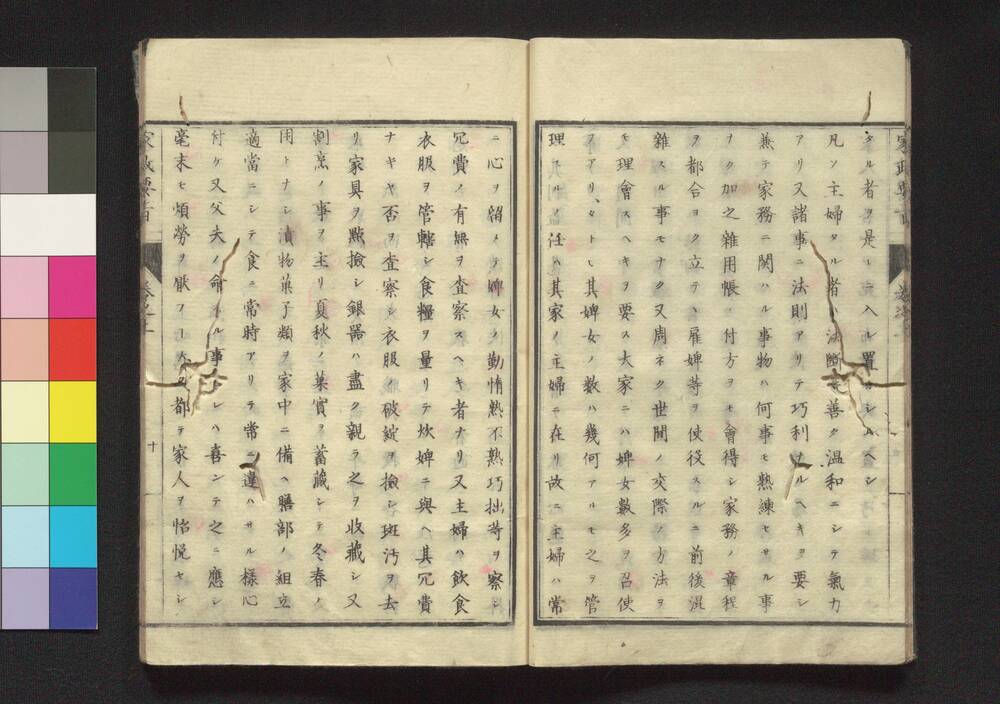 タル者ヲ是レニ入レ置カシムヘシ
凡ソ主婦タル者ハ法ヲ善ク温和ニシテ氣力
アリ又諸事ニ法則アリテ巧利ナルヘキヲ要シ
兼テ家務ニ関ハル事物ハ何事モ熟練セサル事
ナク加之雜用帳ノ付方ヲモ會得シ家務ノ章程
ヲ都合ヨク立テヽ雇婢等ヲ使役スルニ前後混
雜スル事モナク又周ネク世間ノ交際ノ方法ヲ
モ理會スヘキヲ要ス大家ニハ婢女數多ヲ召使
フアリ、タトヒ其婢女ノ數ハ幾何アルモ之ヲ管
理スルノ任ハ其家ノ主婦ニ在リ故ニ主婦ハ常
ニ心ヲ留メテ婢女ノ勤惰熟不熟巧拙等ヲ察シ
冗費ノ有無ヲ査察スヘキ者ナリ又主婦ハ飲食
衣服ヲ管轄シ食糧ヲ量リテ炊婢ニ與ヘ其冗費
ナキヤ否ヲ査察シ衣服ノ破綻ヲ撿シ斑汚ヲ去
リ家具ヲ點撿シ銀器ハ盡ク親ラ之ヲ收藏シ又
割烹ノ事ヲ主リ夏秋ノ菓實ヲ蓄藏シテ冬春ノ
用トナシ漬物菓子類ヲ家中ニ備ヘ膳部ノ組立
適當ニシテ食ニ常時アリテ常ニ違ハサル樣心
付ケ又父夫ノ命スル事アレハ喜ンテ之ニ應シ
毫末モ煩勞ヲ厭フ都テ家人ヲ怡悦セシ
家政要旨
十